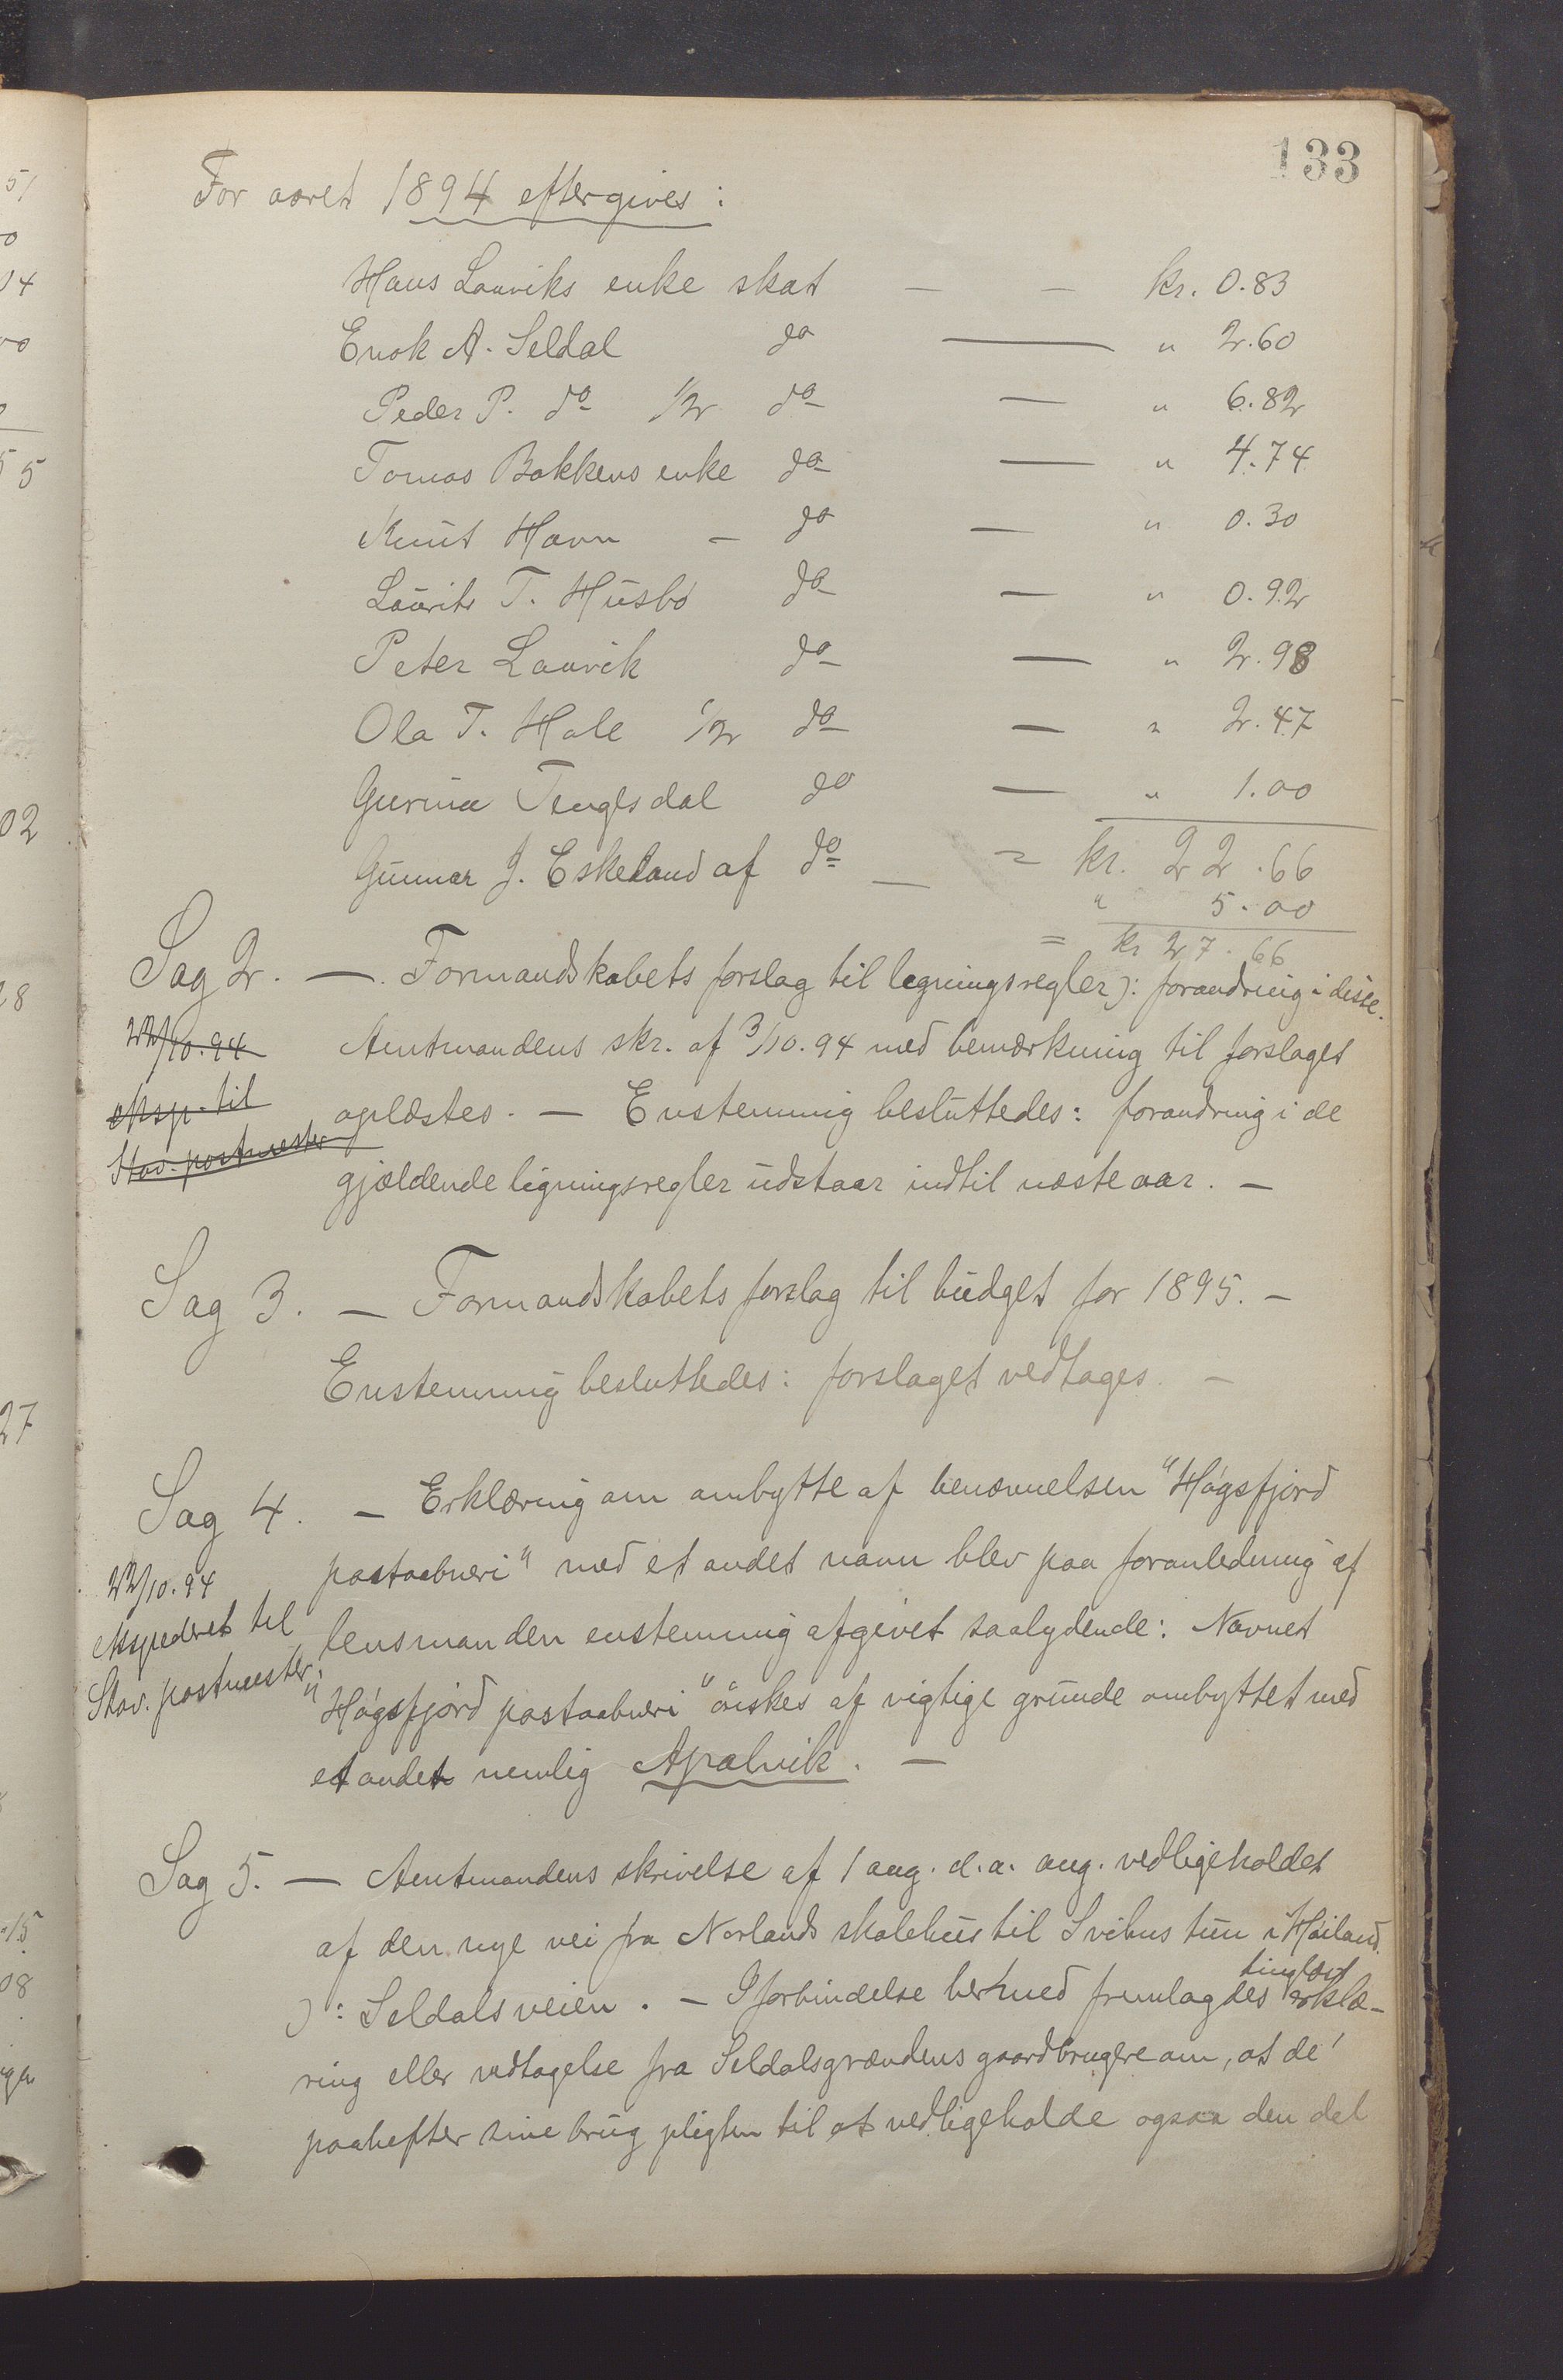 133
For aaret 1894 eftergives:
Hans Lauviks enke skat — — kr. 0.83
Enok A. Seldal do — " 2.60
Peder P. do 1/2 do — " 6.82
Tomas Bakkens enke do — " 4.74
Knut Havn – do — " 0.30
Laurits T. Husbø do — " 0.92
Peter Lauvik do — " 2.98
Ola T. Hole 1/2 do — " 2.47
Gurina Tengesdal do — " 1.00
Gunnar J. Eskeland af do — = kr. 22.66
" 5.00
= kr 27.66
Sag 2. —. Formandskabets forslag til legningsregler ): forandring i disse.
Amtmandens skr. af 3/10.94 med bemærkning til forslaget
oplæstes. — Enstemmig besluttedes: forandring i de
gjældende ligningsregler udstaar indtil næste aar. —
22/10.94
eksp. til
Stav. postmester
Sag 3. — Formandskabets forslag til budget for 1895. —
Enstemmig besluttedes: forslaget vedtages. —
Sag 4. — Erklæring om ombytte af benævnelsen "Høgsfjord
postaabneri" med et andet navn blev paa foranledning af
lensmanden enstemmig afgivet saalydende: Navnet
"Høgsfjord postaabneri" ønskes af vigtige grunde ombyttet med
et andet nemlig Apalvik. —
22/10.94
ekspederet til
Stav. postmester
Sag 5. — Amtmandens skrivelse af 1 aug. d.a. ang. vedligeholdet
af den nye vei fra Norlands skolehus til Svihus tun i Høiland.
): Seldalsveien. — I forbindelse hermed fremlagdes tinglæst erklæ-
ring eller vedtagelse fra Seldalsgrændens gaardbrugere om, at de
paahefter sine brug pligten til at vedligeholde ogsaa den del